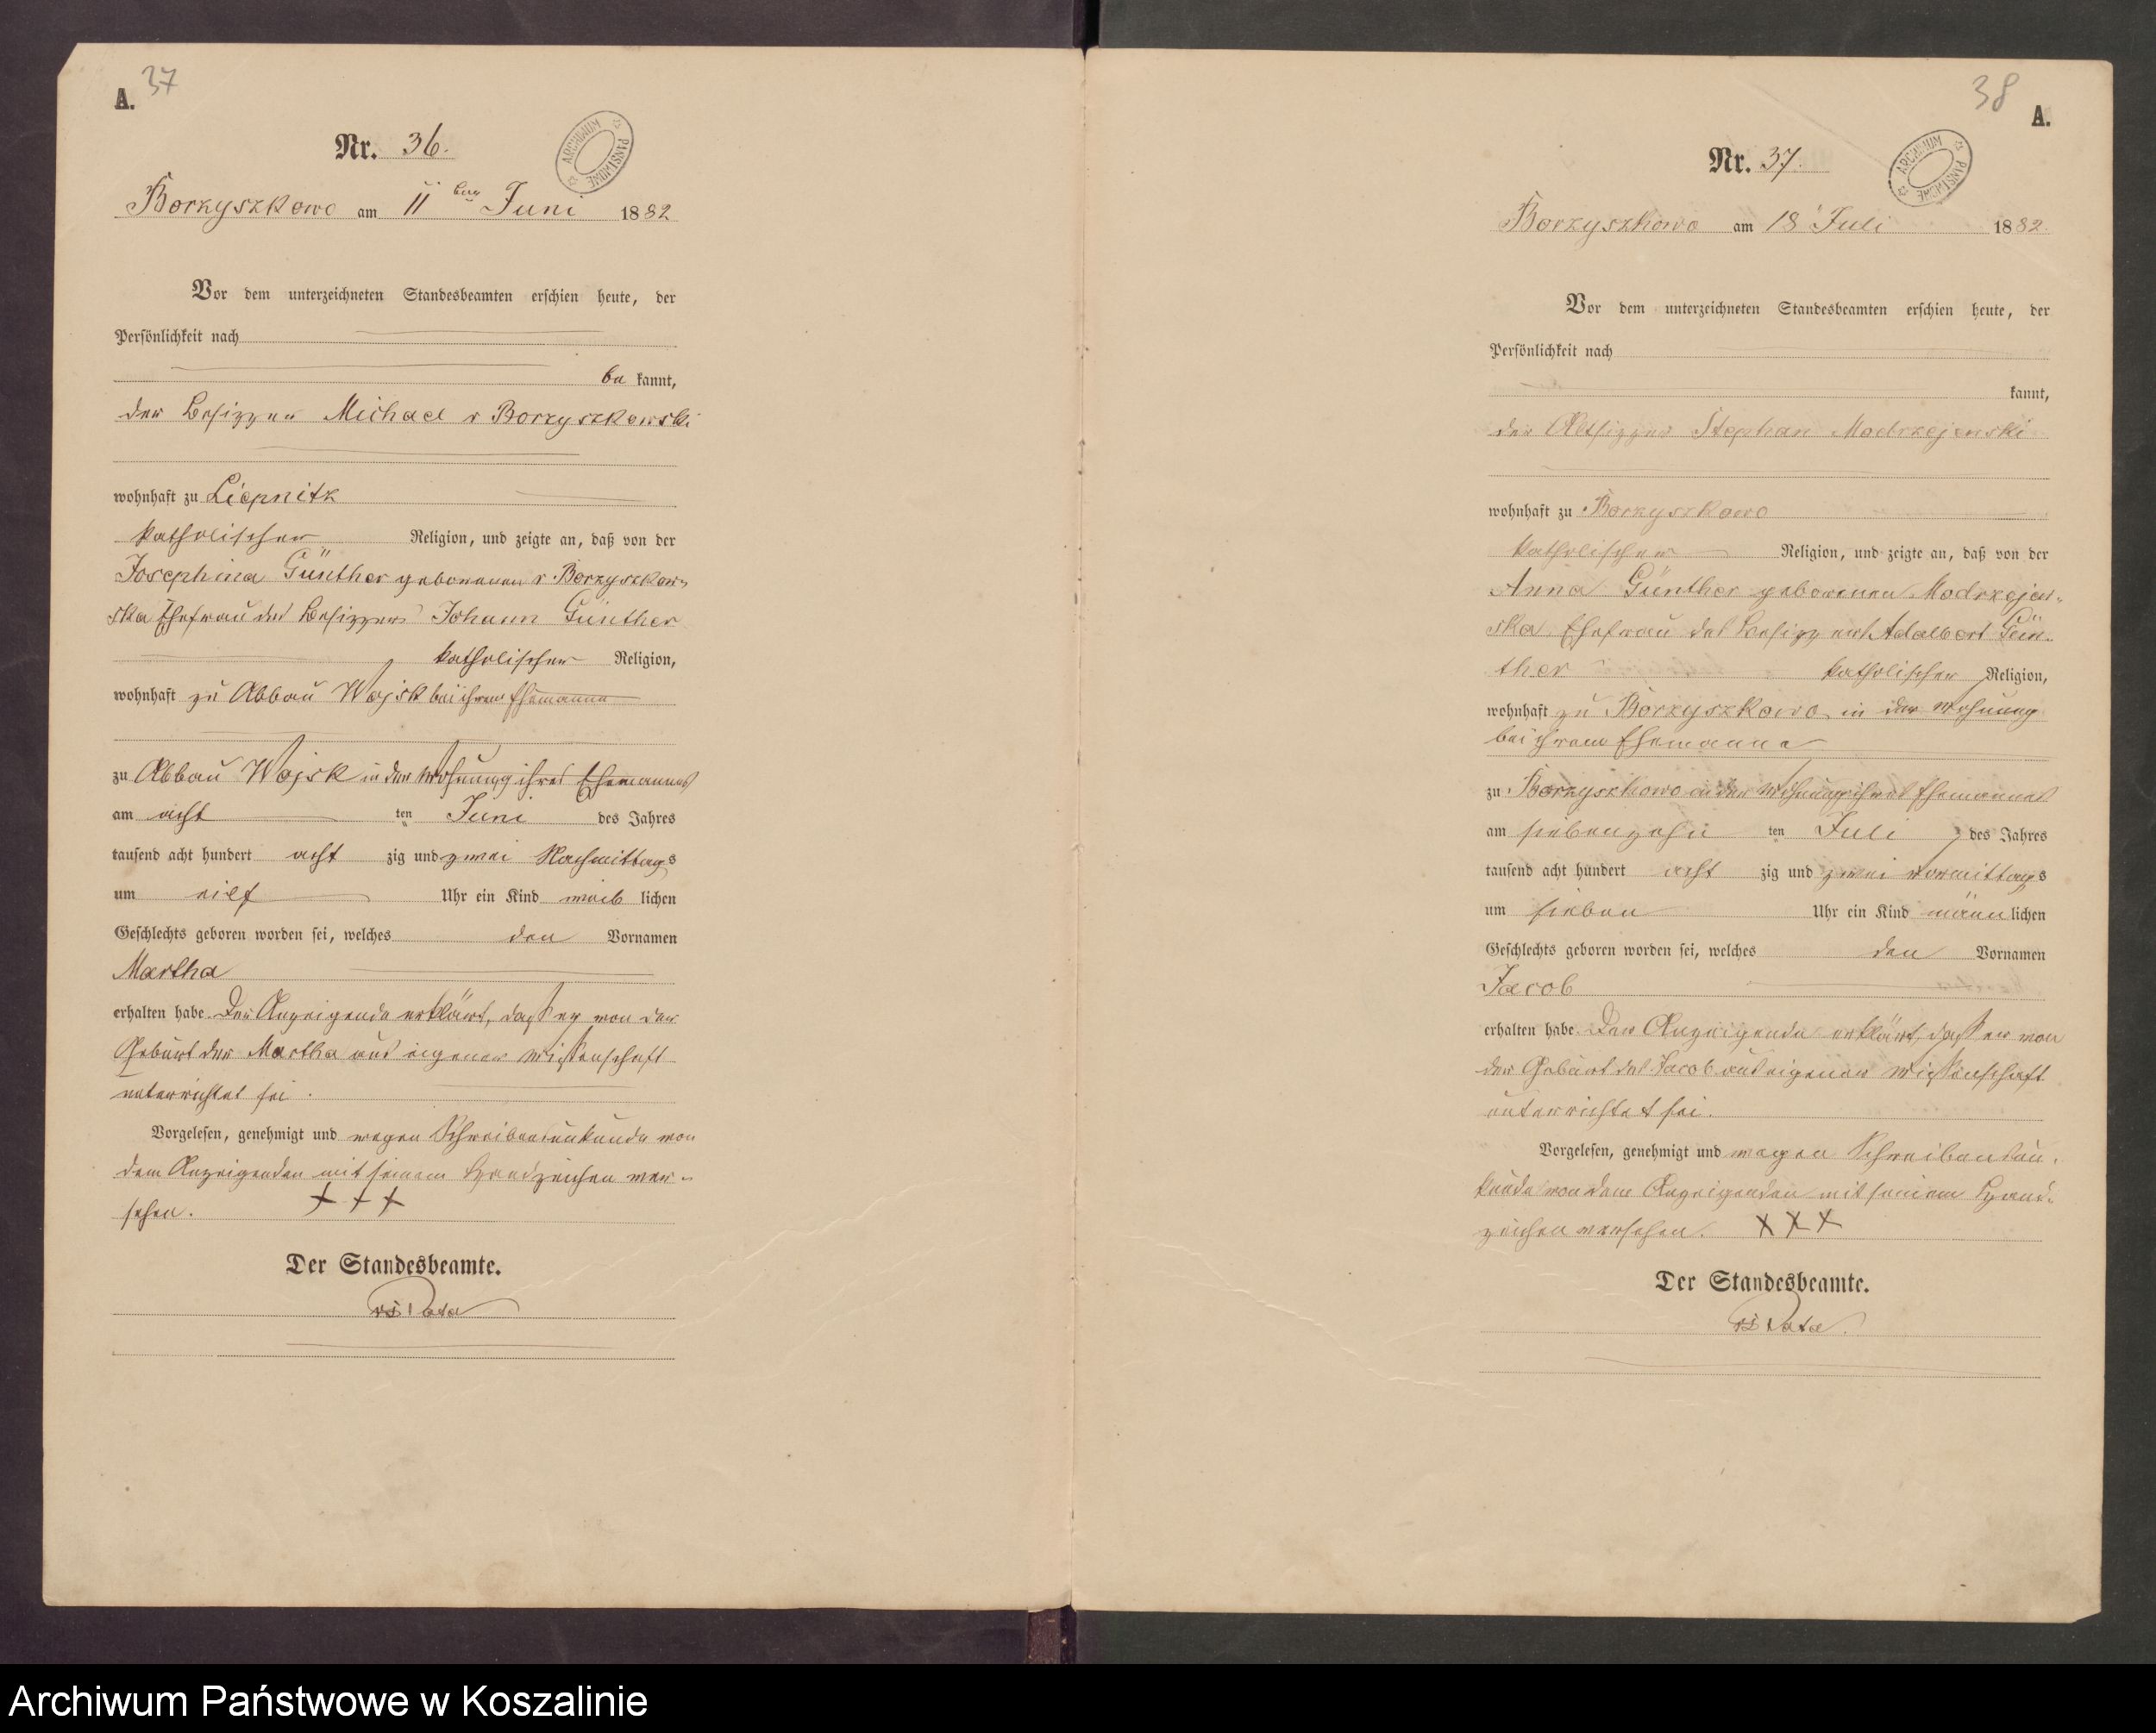 37
A.
Nr. 36.
ARCHIWUM PAŃSTWOWE
Borzyszkowo am 11 ten Juni 1882
Vor dem unterzeichneten Standesbeamten erschien heute, der
Persönlichkeit nach
be kannt,
der Besitzer Michael v Borzyszkowski
wohnhaft zu Liepnitz
katholischer Religion, und zeigte an, daß von der
Josephina Günther geborenen v Borzyszkow-
ska Ehefrau des Besitzers Johann Günther
katholischer Religion,
wohnhaft zu Abbau Wojsk bei ihrem Ehemanne
zu Abbau Wojsk in der Wohnung ihres Ehemannes
am acht ten Juni des Jahres
tausend acht hundert acht zig und zwei Nachmittags
um eilf Uhr ein Kind weib lichen
Geschlechts geboren worden sei, welches den Vornamen
Martha
erhalten habe Der Anzeigende erklärt, dass er von der
Geburt der Martha aus eigener Wissenschaft
unterrichtet sei.
Vorgelesen, genehmigt und wegen Schreibensunkunde von
dem Anzeigenden mit seinem Handzeichen ver-
sehen. + + +
Der Standesbeamte.
38
A.
Nr. 37.
ARCHIWUM PAŃSTWOWE
Borzyszkowo am 18 Juli 1882
Vor dem unterzeichneten Standesbeamten erschien heute, der
Persönlichkeit nach
kannt,
der Altsitzer Stephan Modrzejewski
wohnhaft zu Borzyszkowo
katholischer Religion, und zeigte an, daß von der
Anna Günther geborenen Modrzejew-
ska Ehefrau des Besitzers Adalbert Gün-
ther katholischer Religion,
wohnhaft zu Borzyszkowo in der Wohnung
bei ihrem Ehemanne
zu Borzyszkowo in der Wohnung ihres Ehemannes
am siebenzehn ten Juli des Jahres
tausend acht hundert acht zig und zwei Vormittags
um sieben Uhr ein Kind männ lichen
Geschlechts geboren worden sei, welches den Vornamen
Jacob
erhalten habe Der Anzeigende erklärt, dass er von
der Geburt des Jacob aus eigener Wissenschaft
unterrichtet sei.
Vorgelesen, genehmigt und wegen Schreibensun-
kunde von dem Anzeigenden mit seinem Hand-
zeichen versehen. X X X
Der Standesbeamte.
Archiwum Państwowe w Koszalinie